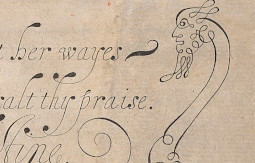 her wayes
alt thy praise.
fine.